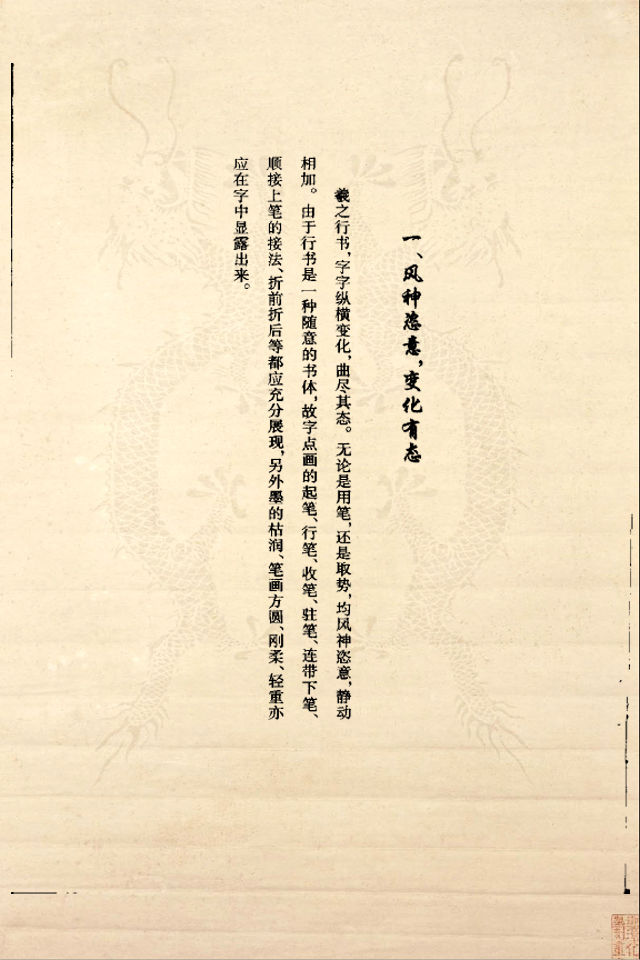 一、风种恣意，变化有态
羲之行书，字字纵横变化，曲尽其态。无论是用笔，还是取势，均风神恣意，静动
相加。由于行书是一种随意的书体，故字点画的起笔、行笔、收笔、驻笔、连带下笔、
顺接上笔的接法、折前折后等都应充分展现，另外墨的枯润、笔画方圆、刚柔、轻重亦
应在字中显露出来。